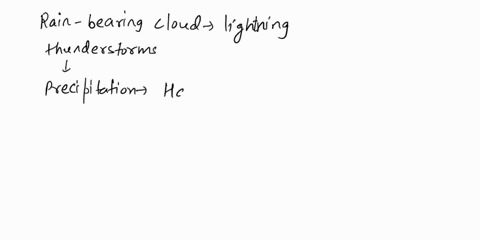 Rain-bearing cloud → lightning
thunderstorms
↓
Precipitation → Hc